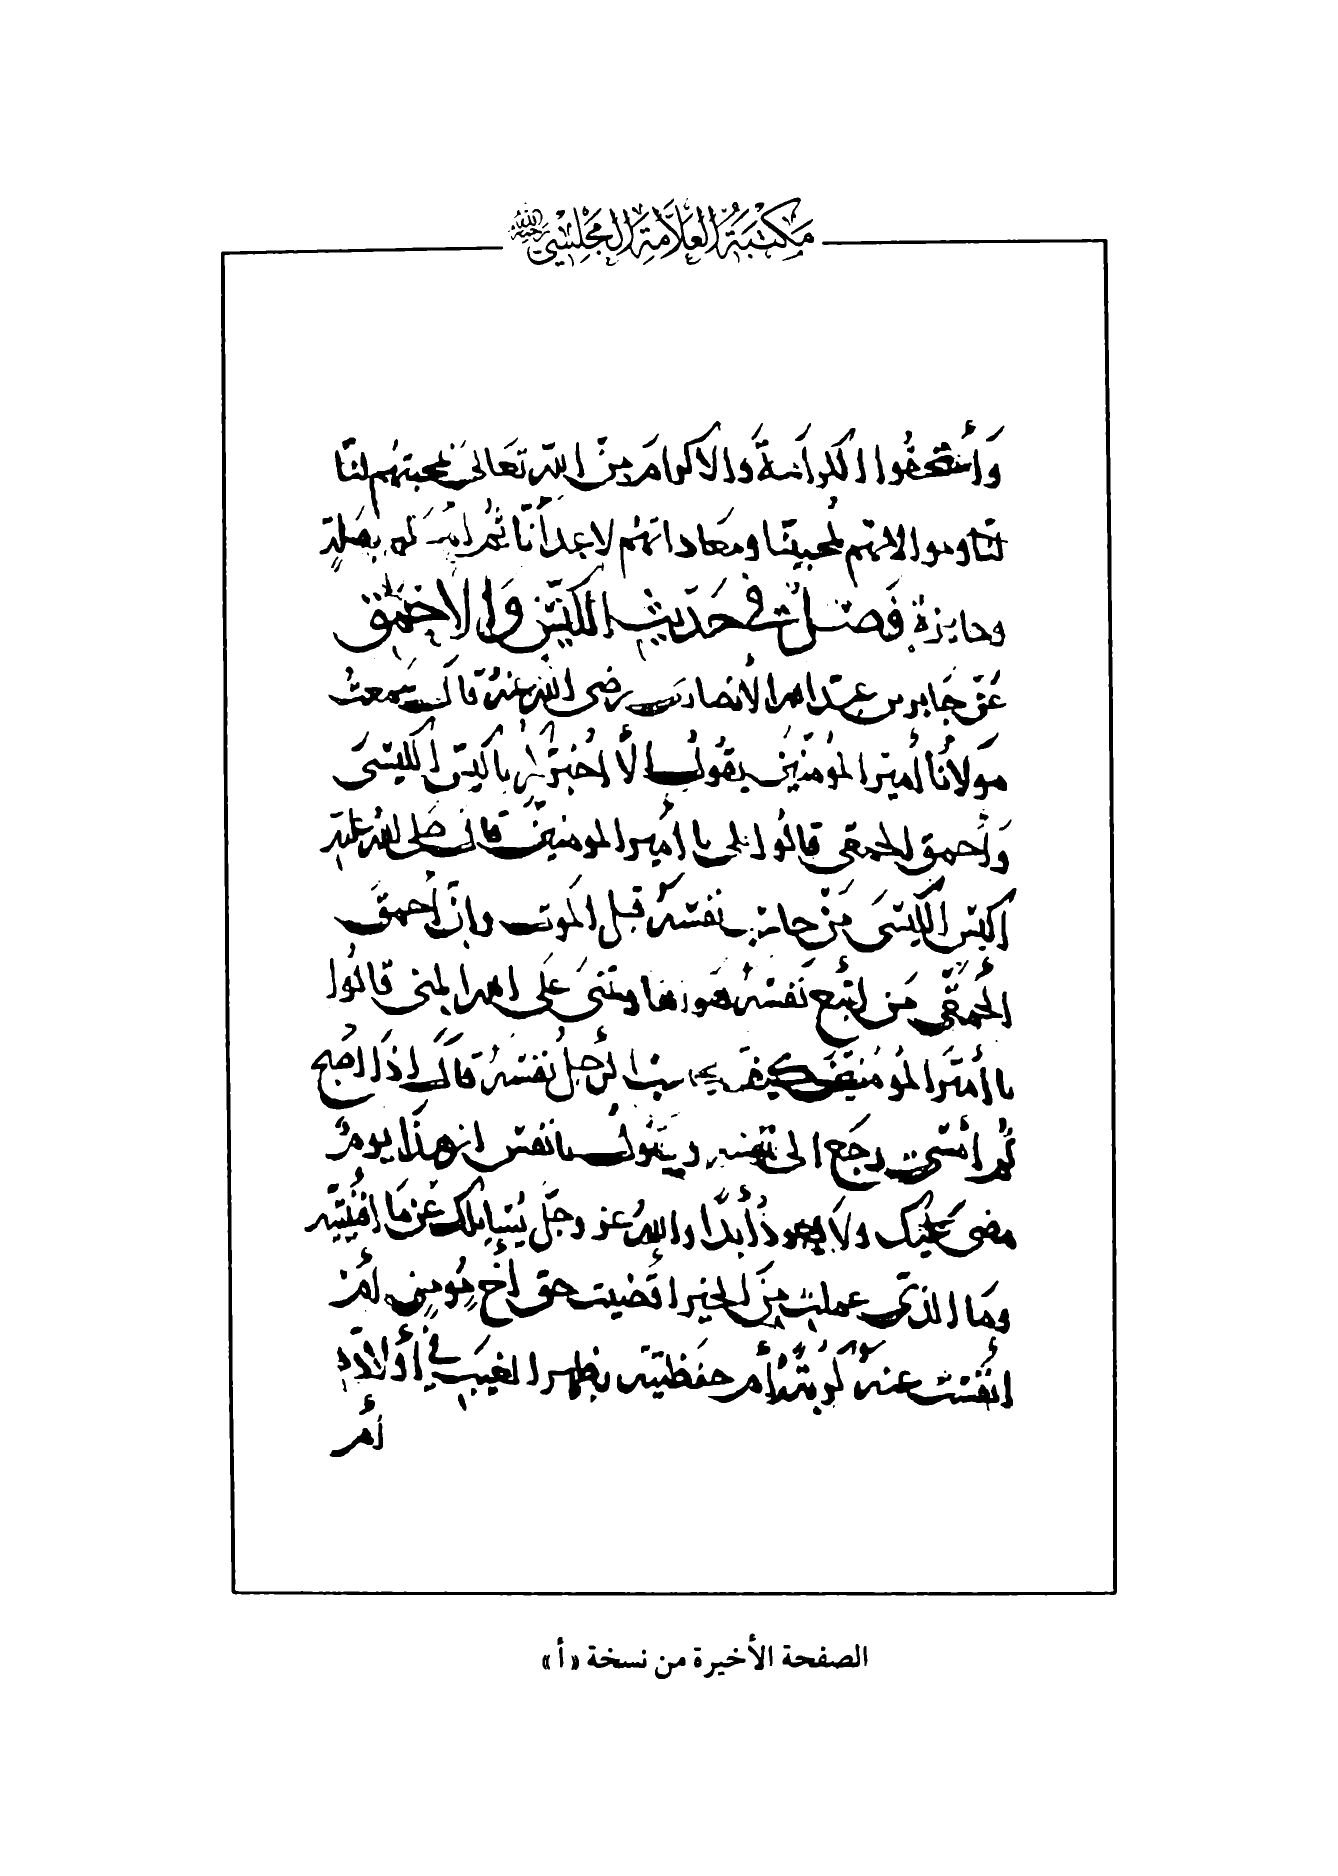 مكتبة العلامة المجلسي رحمه الله
وأستحقوا الكرامة والاكرام من الله تعالى لمحبتهم لنا
لنا وموالاتهم لمحبينا ومعاداتهم لاعدائنا ثم امر لهم بصلة
وجايزة فصل في حديث الكيس والاحمق
عن جابر بن عبد الله الأنصاري رضى الله عنه قال سمعت
مولانا أمير المؤمنين يقول الا اخبركم باكيس الكيسى
وأحمق الحمقى قالوا بلى يا أمير المومنين قال صلى الله عليه
اكيس الكيسى من حاسب نفسه قبل الموت وان أحمق
الحمقى من اتبع نفسه هواها وتمنى على الله المنى قالوا
يا أمير المومنين كيف يحاسب الرجل نفسه قال اذا اصبح
ثم أمسى رجع الى نفسه ويقول يا نفس ان هذا يوم
مضى عليك ولا يعود أبدا والله عز وجل يسايلك عن ما افنيتيه
وما الذي عملت من الخير اقضيت حق أخ مومن أم
انفست عنه كربة أم حفظتيه بظهر الغيب في أولاده
أم
الصفحة الأخيرة من نسخة «أ»